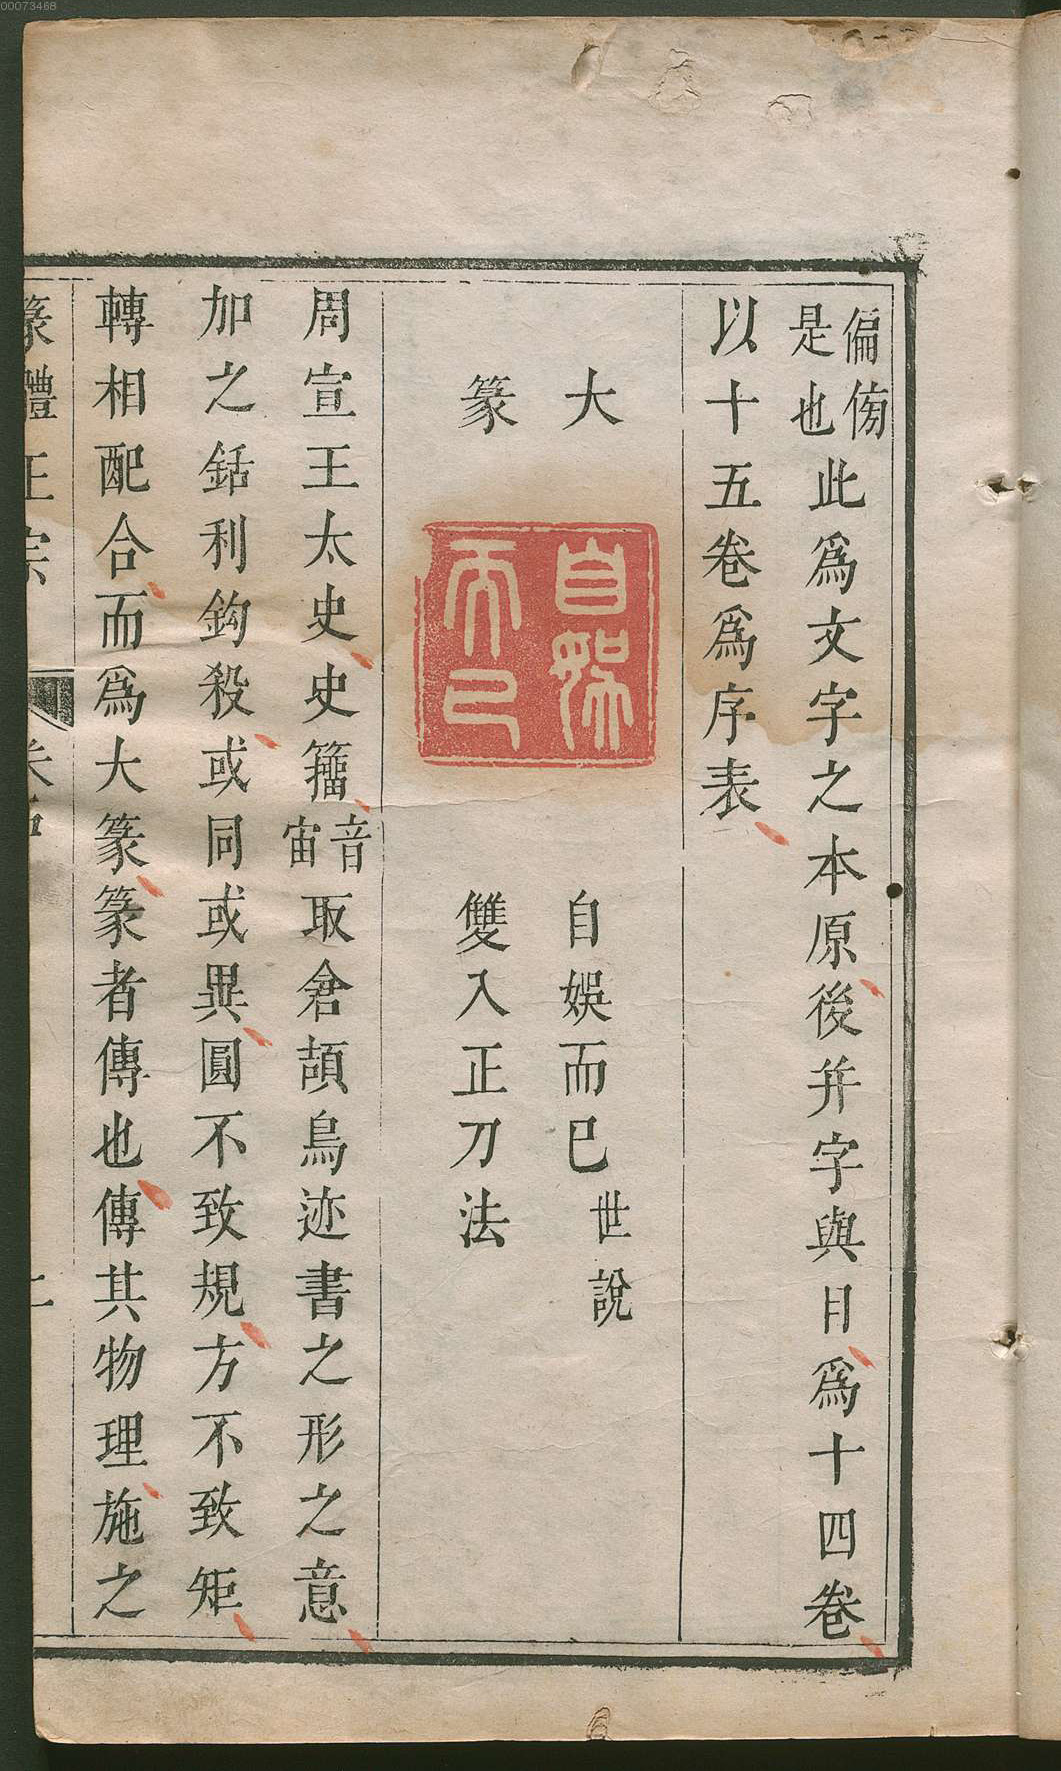 00073468
偏傍
是也
此爲文字之本原後并字與目爲十四卷
以十五卷爲序表
大
篆
自娛而已
自娛而已世説
雙入正刀法
周宣王太史史籒音宙取倉頡鳥迹書之形之意
加之銛利鈎殺或同或異圓不致規方不致矩
轉相配合而爲大篆篆者傳也傳其物理施之
篆體正宗
上